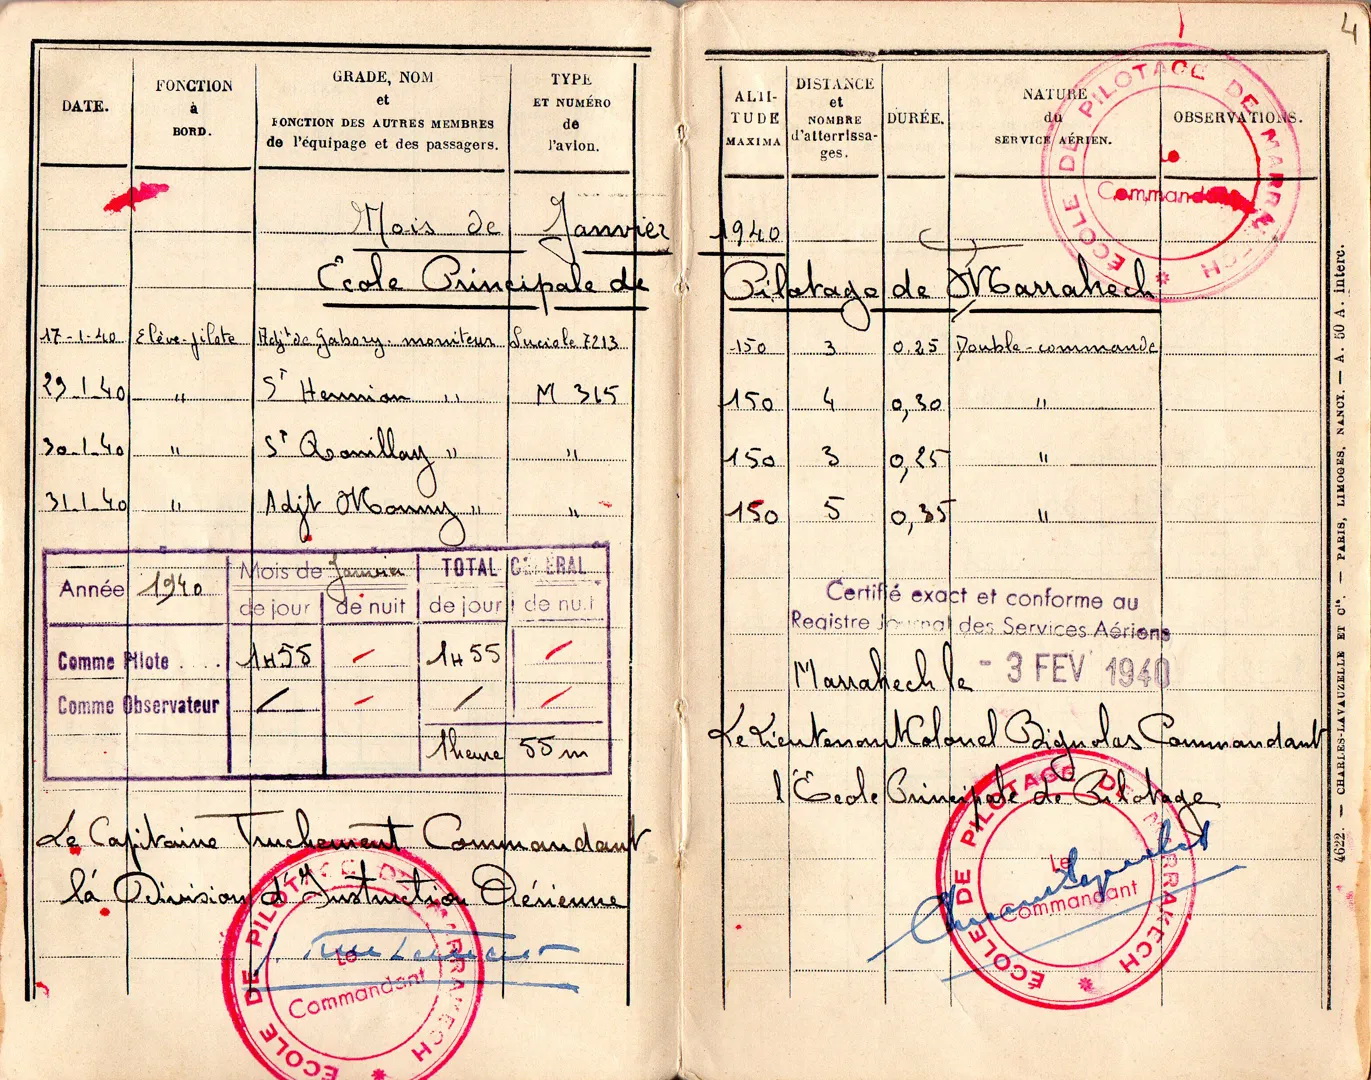 4
DATE.
FONCTION
à
BORD.
GRADE, NOM
et
FONCTION DES AUTRES MEMBRES
de l'équipage et des passagers.
TYPE
ET NUMÉRO
de
l'avion.
ALTI-
TUDE
MAXIMA
DISTANCE
et
NOMBRE
d'atterrissa-
ges.
DURÉE.
NATURE
du
SERVICE AÉRIEN.
OBSERVATIONS.
ÉCOLE DE PILOTAGE DE MARRAKECH
Le
Commandant
Mois de Janvier 1940
Ecole Principale de Pilotage de Marrakech
17-1-40 Elève-pilote Adjt de Gabory. moniteur Luciole 7213 150 3 0.25 Double-commande
29.1.40 " St " M 315 150 4 0,30 "
30.1.40 " St " " 150 3 0,25 "
31.1.40 " Adjt " " 150 5 0,35 "
Année 1940 Mois de Janvier TOTAL GÉNÉRAL
de jour de nuit de jour de nuit
Comme Pilote .... 1H55 / 1H55 /
Comme Observateur / / / /
1 heure 55 m
Certifié exact et conforme au
Registre Journal des Services Aériens
Marrakech le - 3 FEV 1940
Le Capitaine Truchement Commandant
la Division d'Instruction Aérienne
Le Lieutenant Colonel Bignolas Commandant
l'Ecole Principale de Pilotage
ÉCOLE DE PILOTAGE DE MARRAKECH
Le
Commandant
ÉCOLE DE PILOTAGE DE MARRAKECH
Le
Commandant
4622. — CHARLES-LAVAUZELLE ET Cie. — PARIS, LIMOGES, NANCY. — A. 50 A. interc.